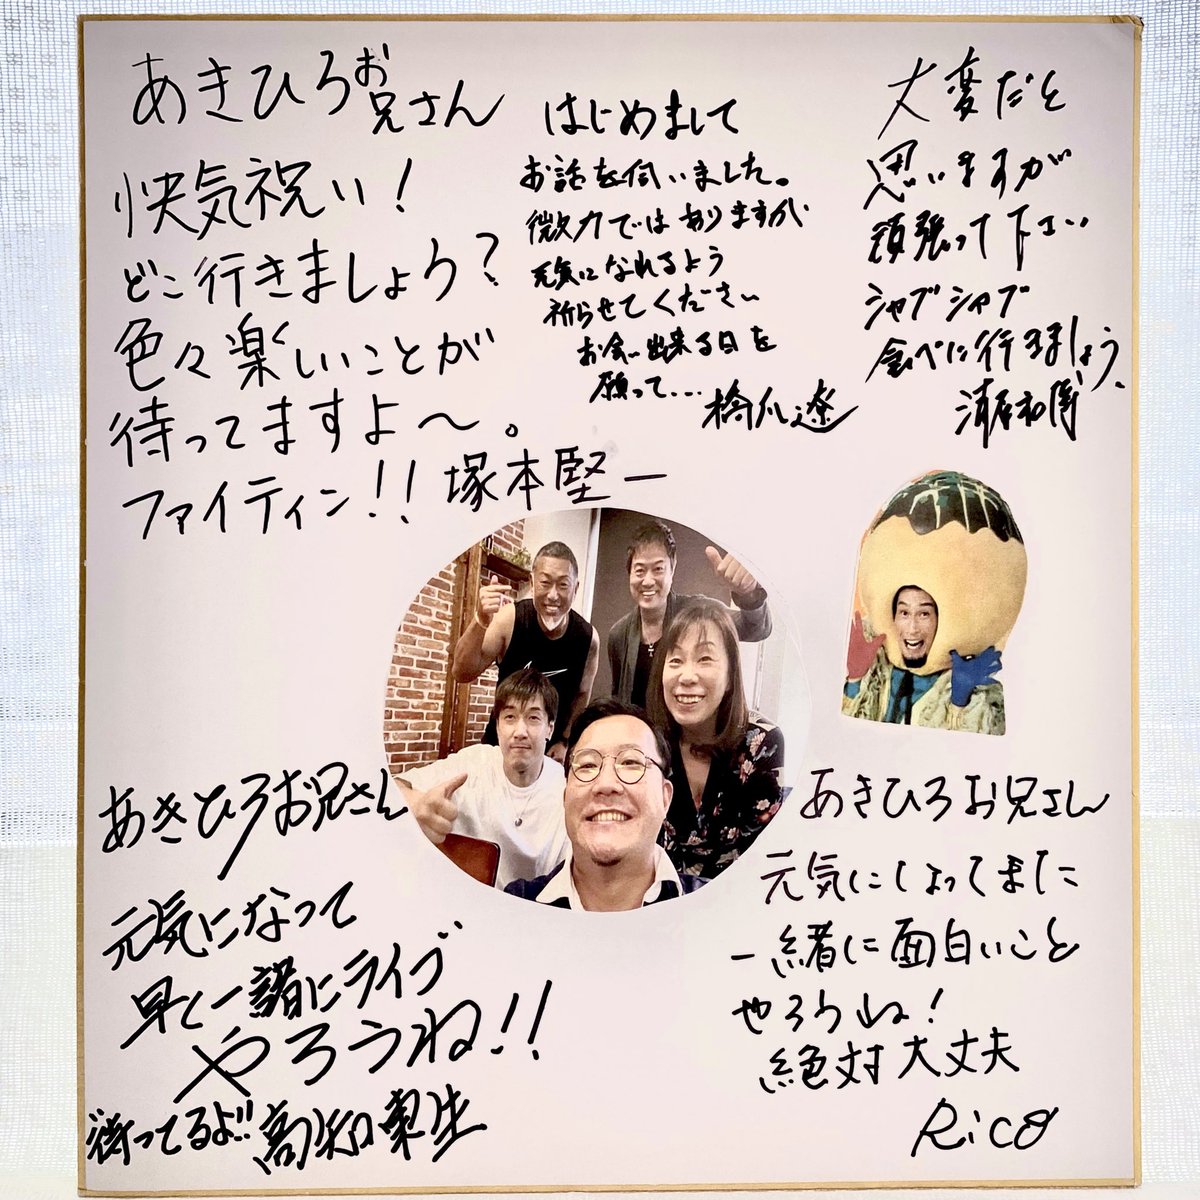 あきひろお兄さん
快気祝い!
どこ行きましょう?
色々楽しいことが
待ってますよ〜。
ファイティン!! 塚本堅一
はじめまして
お話を伺いました。
微力ではありますが
元気になれるよう
祈らせてください
お会い出来る日を
願って...
遼
大変だと
思いますが
頑張って下さい
シャブシャブ
食べに行きましょう、
和博
あきひろお兄さん
元気になって
早く一諸にライブ
やろうね!!
待ってるよ!! 高知東生
あきひろお兄さん
元気にしょってまた
一緒に面白いこと
やろうね!
絶対大丈夫
Rico